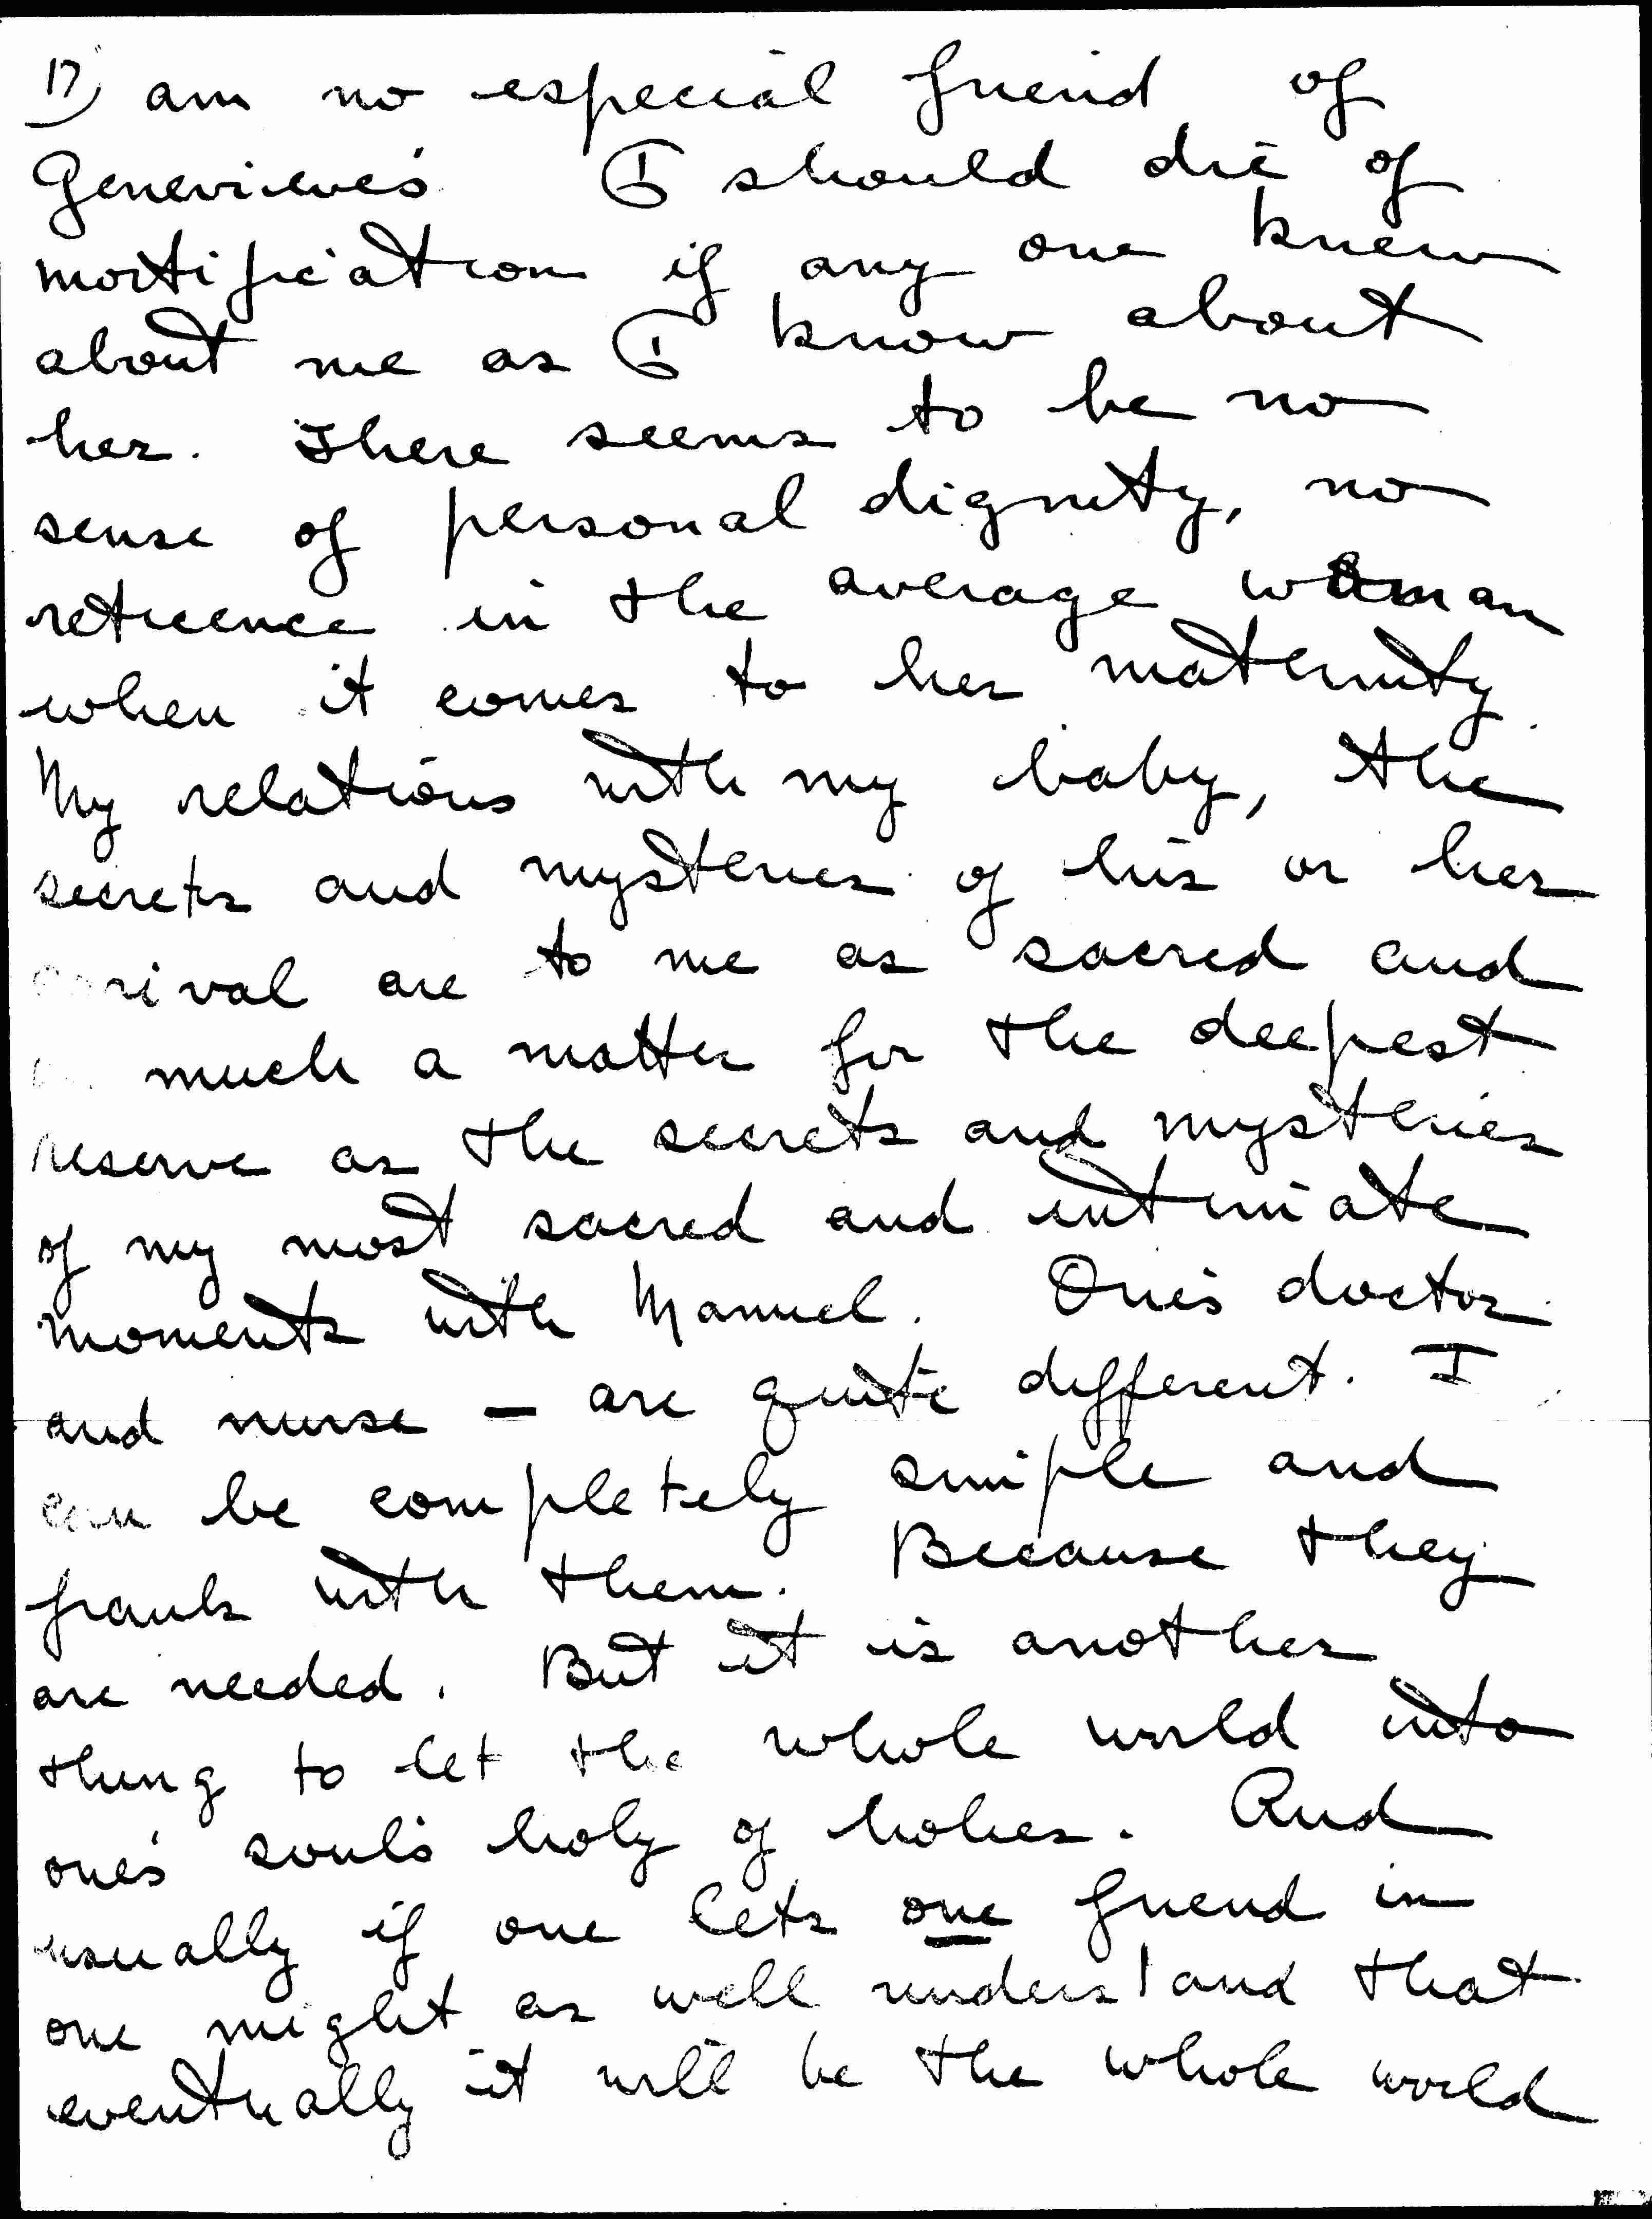 17) am no especial friend of
Genevieve's I should die of
mortification if any one knew
about me as I know about
her. There seems to be no
sense of personal dignity, no
reticence in the average woman
when it comes to her maternity.
My relations with my baby, the
secrets and mysteries of his or her
arrival are to me as sacred and
much a matter for the deepest
reserve as the secrets and mysteries
of my most sacred and intimate
moments with Manuel. One's doctor
and nurse — are quite different. I
can be completely simple and
frank with them. Because they
are needed. But it is another
thing to let the whole world into
one's soul's holy of holies. And
usually if one lets one friend in
one might as well understand that
eventually it will be the whole world